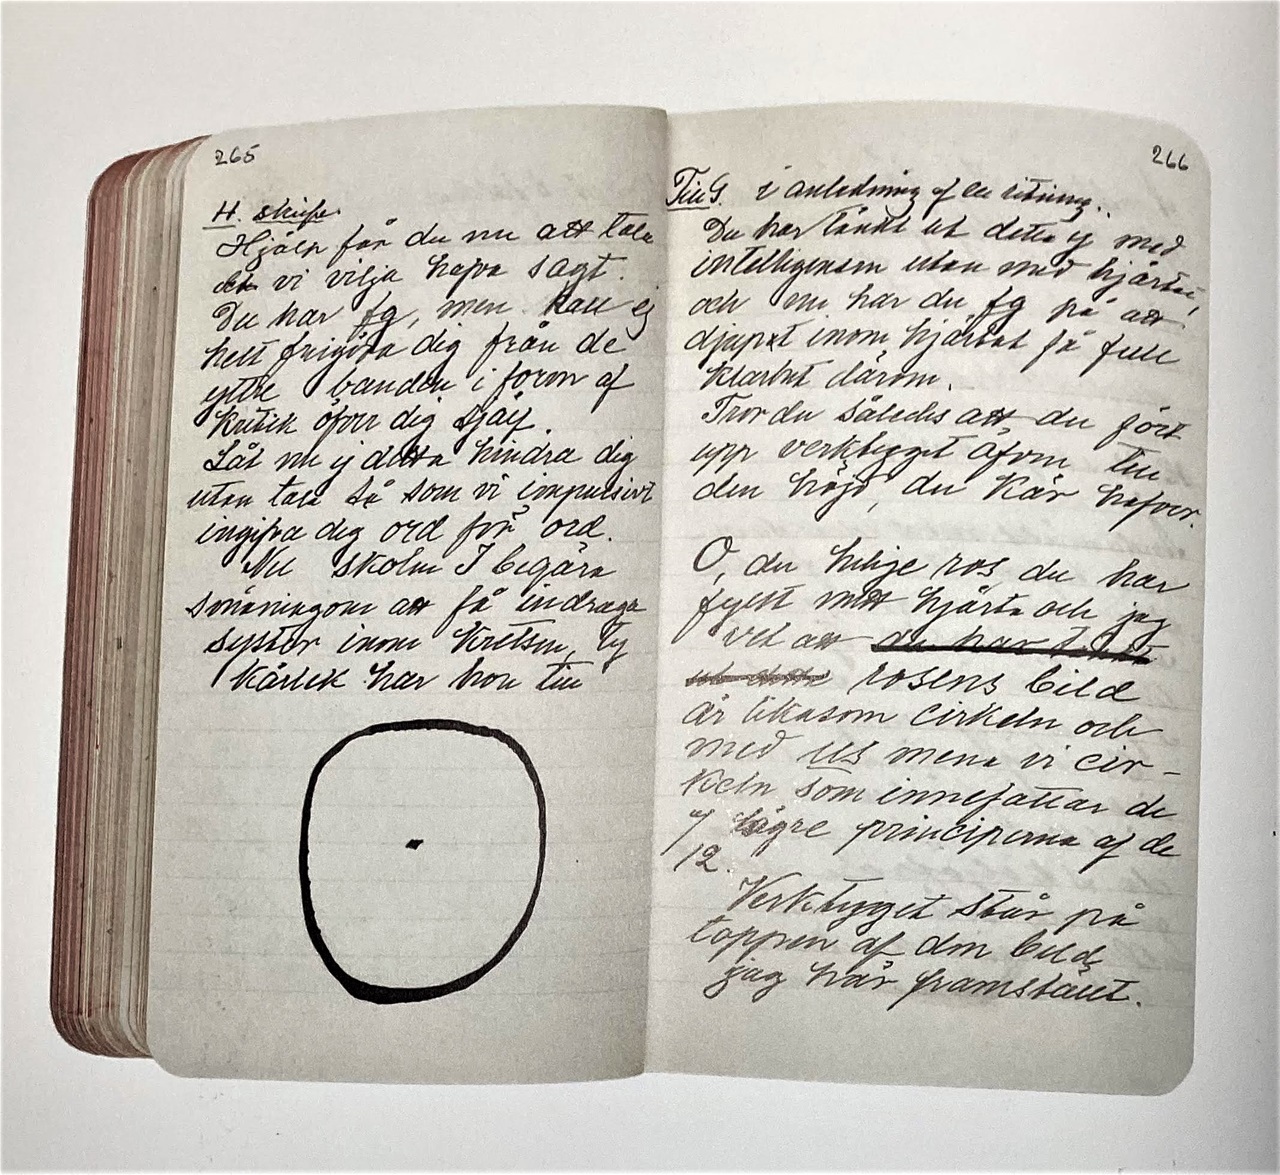 265
H. skrifv.
Hjälp får du nu att tala
det vi vilja hafva sagt.
Du har fg, men kan ej
helt frigöra dig från de
yttre banden i form af
kritik öfver dig själf.
Låt nu ej detta hindra dig
utan tala så som vi impulsivt
ingifva dig ord för ord.
Nu skolen I begära
småningom att få indraga
syster inom kretsen, ty
kärlek har hon till
266
Till G. i anledning af en ritning..
Du har tänkt ut detta ej med
intelligensen utan med hjärtat,
och nu har du fg på att
djupt inom hjärtat få full
klarhet därom.
Tror du således att du fört
upp verktyget äfven till
den höjd, du här hafver.
O, du helige ros, du har
fyllt mitt hjärta och jag
vet att du har tänkt
ut detta rosens bild
är likasom cirkeln och
med us mena vi cir-
keln som innefattar de
7 lägre principerna af de
12.
Verktyget står på
toppen af den bild
jag här framställt.